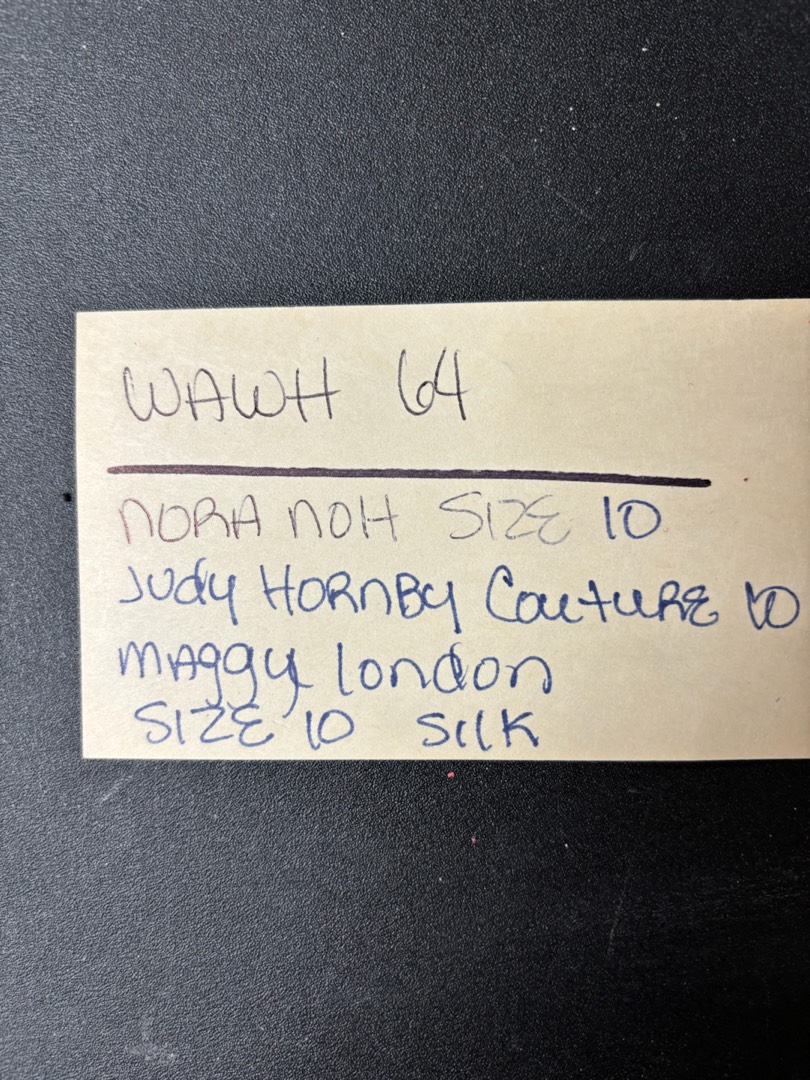 WAWH 64
NORA NOH SIZE 10
JUDY HORNBY COUTURE 10
MAGGY London
SIZE 10 SILK